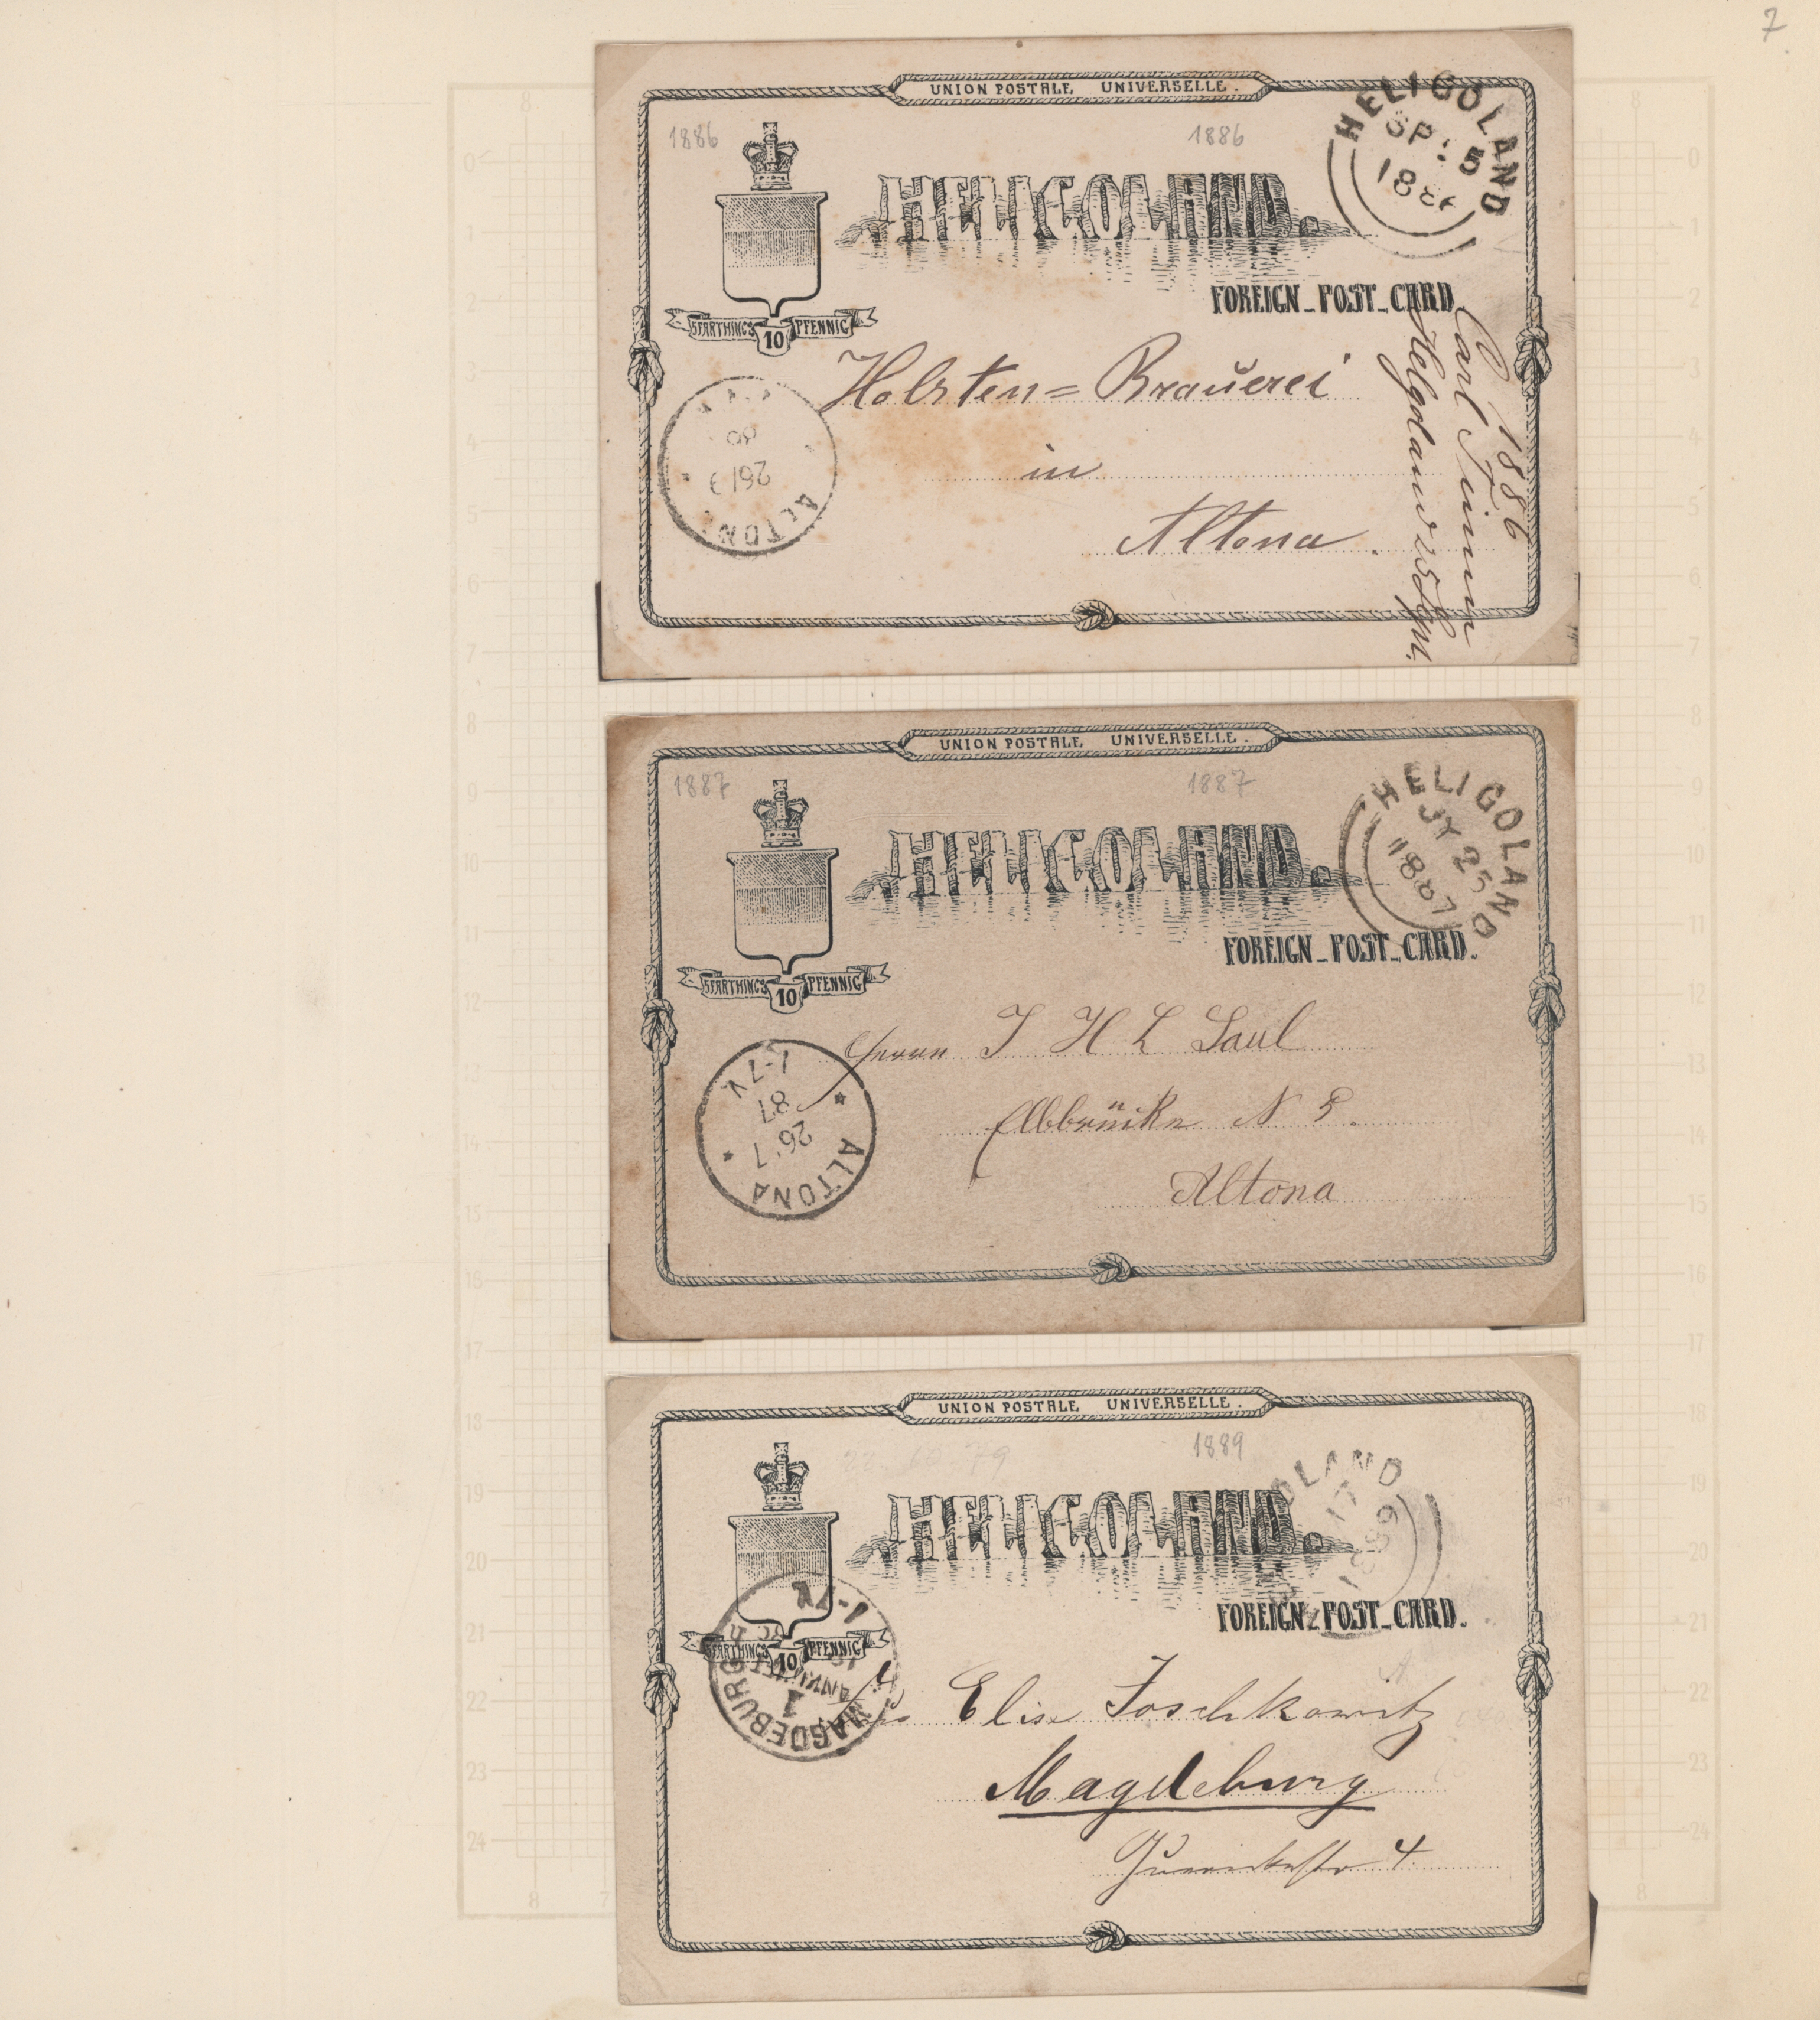 7
UNION POSTALE UNIVERSELLE.
1886
1886
HELIGOLAND
SP 5
188
HELIGOLAND.
FOREIGN_POST_CARD.
5 FARTHINGS 10 PFENNIG
Holsten=Brauerei
in
Altona.
ALTON
1886
Carl
Helgoland
UNION POSTALE UNIVERSELLE.
1887
1887
HELIGOLAND
JY 25
1887
HELIGOLAND.
FOREIGN_POST_CARD.
5 FARTHINGS 10 PFENNIG
Herrn J H L Saul
Elbbrücke N
Altona
ALTONA
26 7
87
-7V
UNION POSTALE UNIVERSELLE.
1889
22 79
OLAND
17
1889
HELIGOLAND.
FOREIGN_POST_CARD.
5 FARTHINGS 10 PFENNIG
MAGDEBURG
1
Elise Joschkowitz
Magdeburg
4.
0
1
2
3
4
5
6
7
8
9
10
11
12
13
14
15
16
17
18
19
20
21
22
23
24
8
7
8
8
0
1
2
3
4
5
6
7
8
9
10
11
12
13
14
15
16
17
18
19
20
21
22
23
24
8